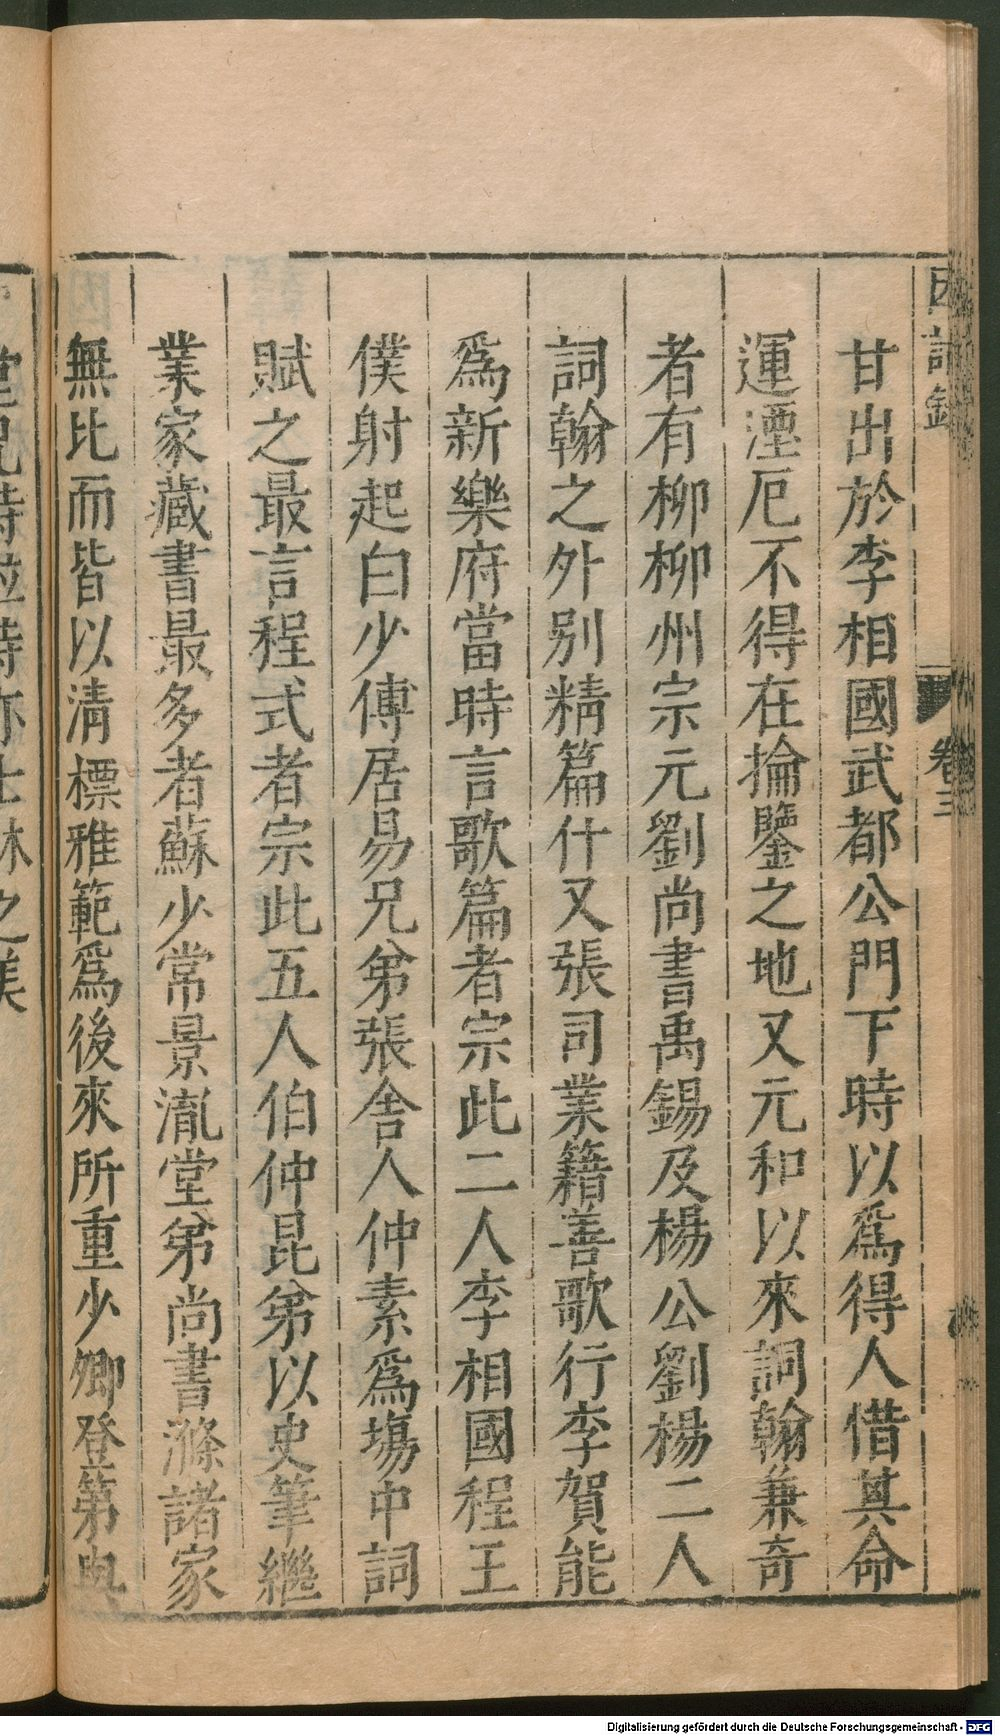 因話錄
卷三
甘出於李相國武都公門下時以爲得人借其命
運湮厄不得在掄鑒之地又元和以來詞翰兼奇
者有柳柳州宗元劉尚書禹錫及楊公劉楊二人
詞翰之外别精篇什又張司業籍善歌行李賀能
爲新樂府當時言歌篇者宗此二人李相國程王
僕射起白少傅居易兄弟張舍人仲素爲塲中詞
賦之最言程式者宗此五人伯仲昆弟以史筆繼
業家藏書最多者蘇少常景胤堂弟尚書滌諸家
無比而皆以清標雅範爲後來所重少卿登第與
堂兄特並時亦士林之美
Digitalisierung gefördert durch die Deutsche Forschungsgemeinschaft - DFG